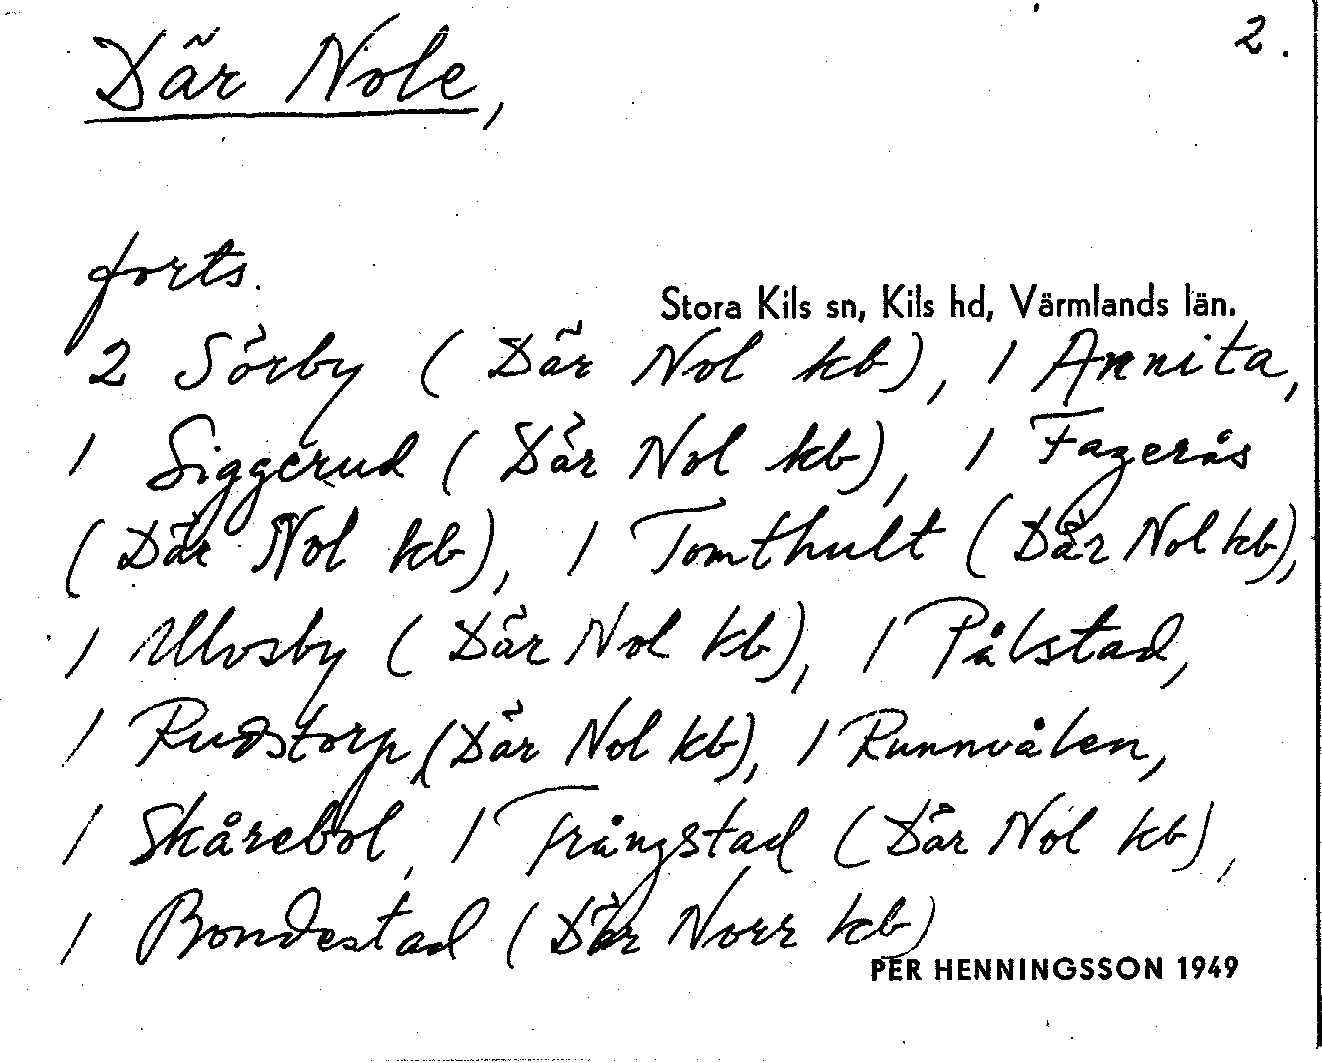 Där Nole,
2.
forts.
Stora Kils sn, Kils hd, Värmlands län.
2 Sörby (Där Nol kb), 1 Annita,
1 Siggerud (Där Nol kb), 1 Fagerås
(Där Nol kb), 1 Tomthult (Där Nol kb),
1 Ulvsby (Där Nol kb), 1 Pålstad,
1 Rudstorp (Där Nol kb), 1 Runnvålen,
1 Skårebol, 1 Trångstad (Där Nol kb),
1 Bondestad (Där Norr kb)
PER HENNINGSSON 1949